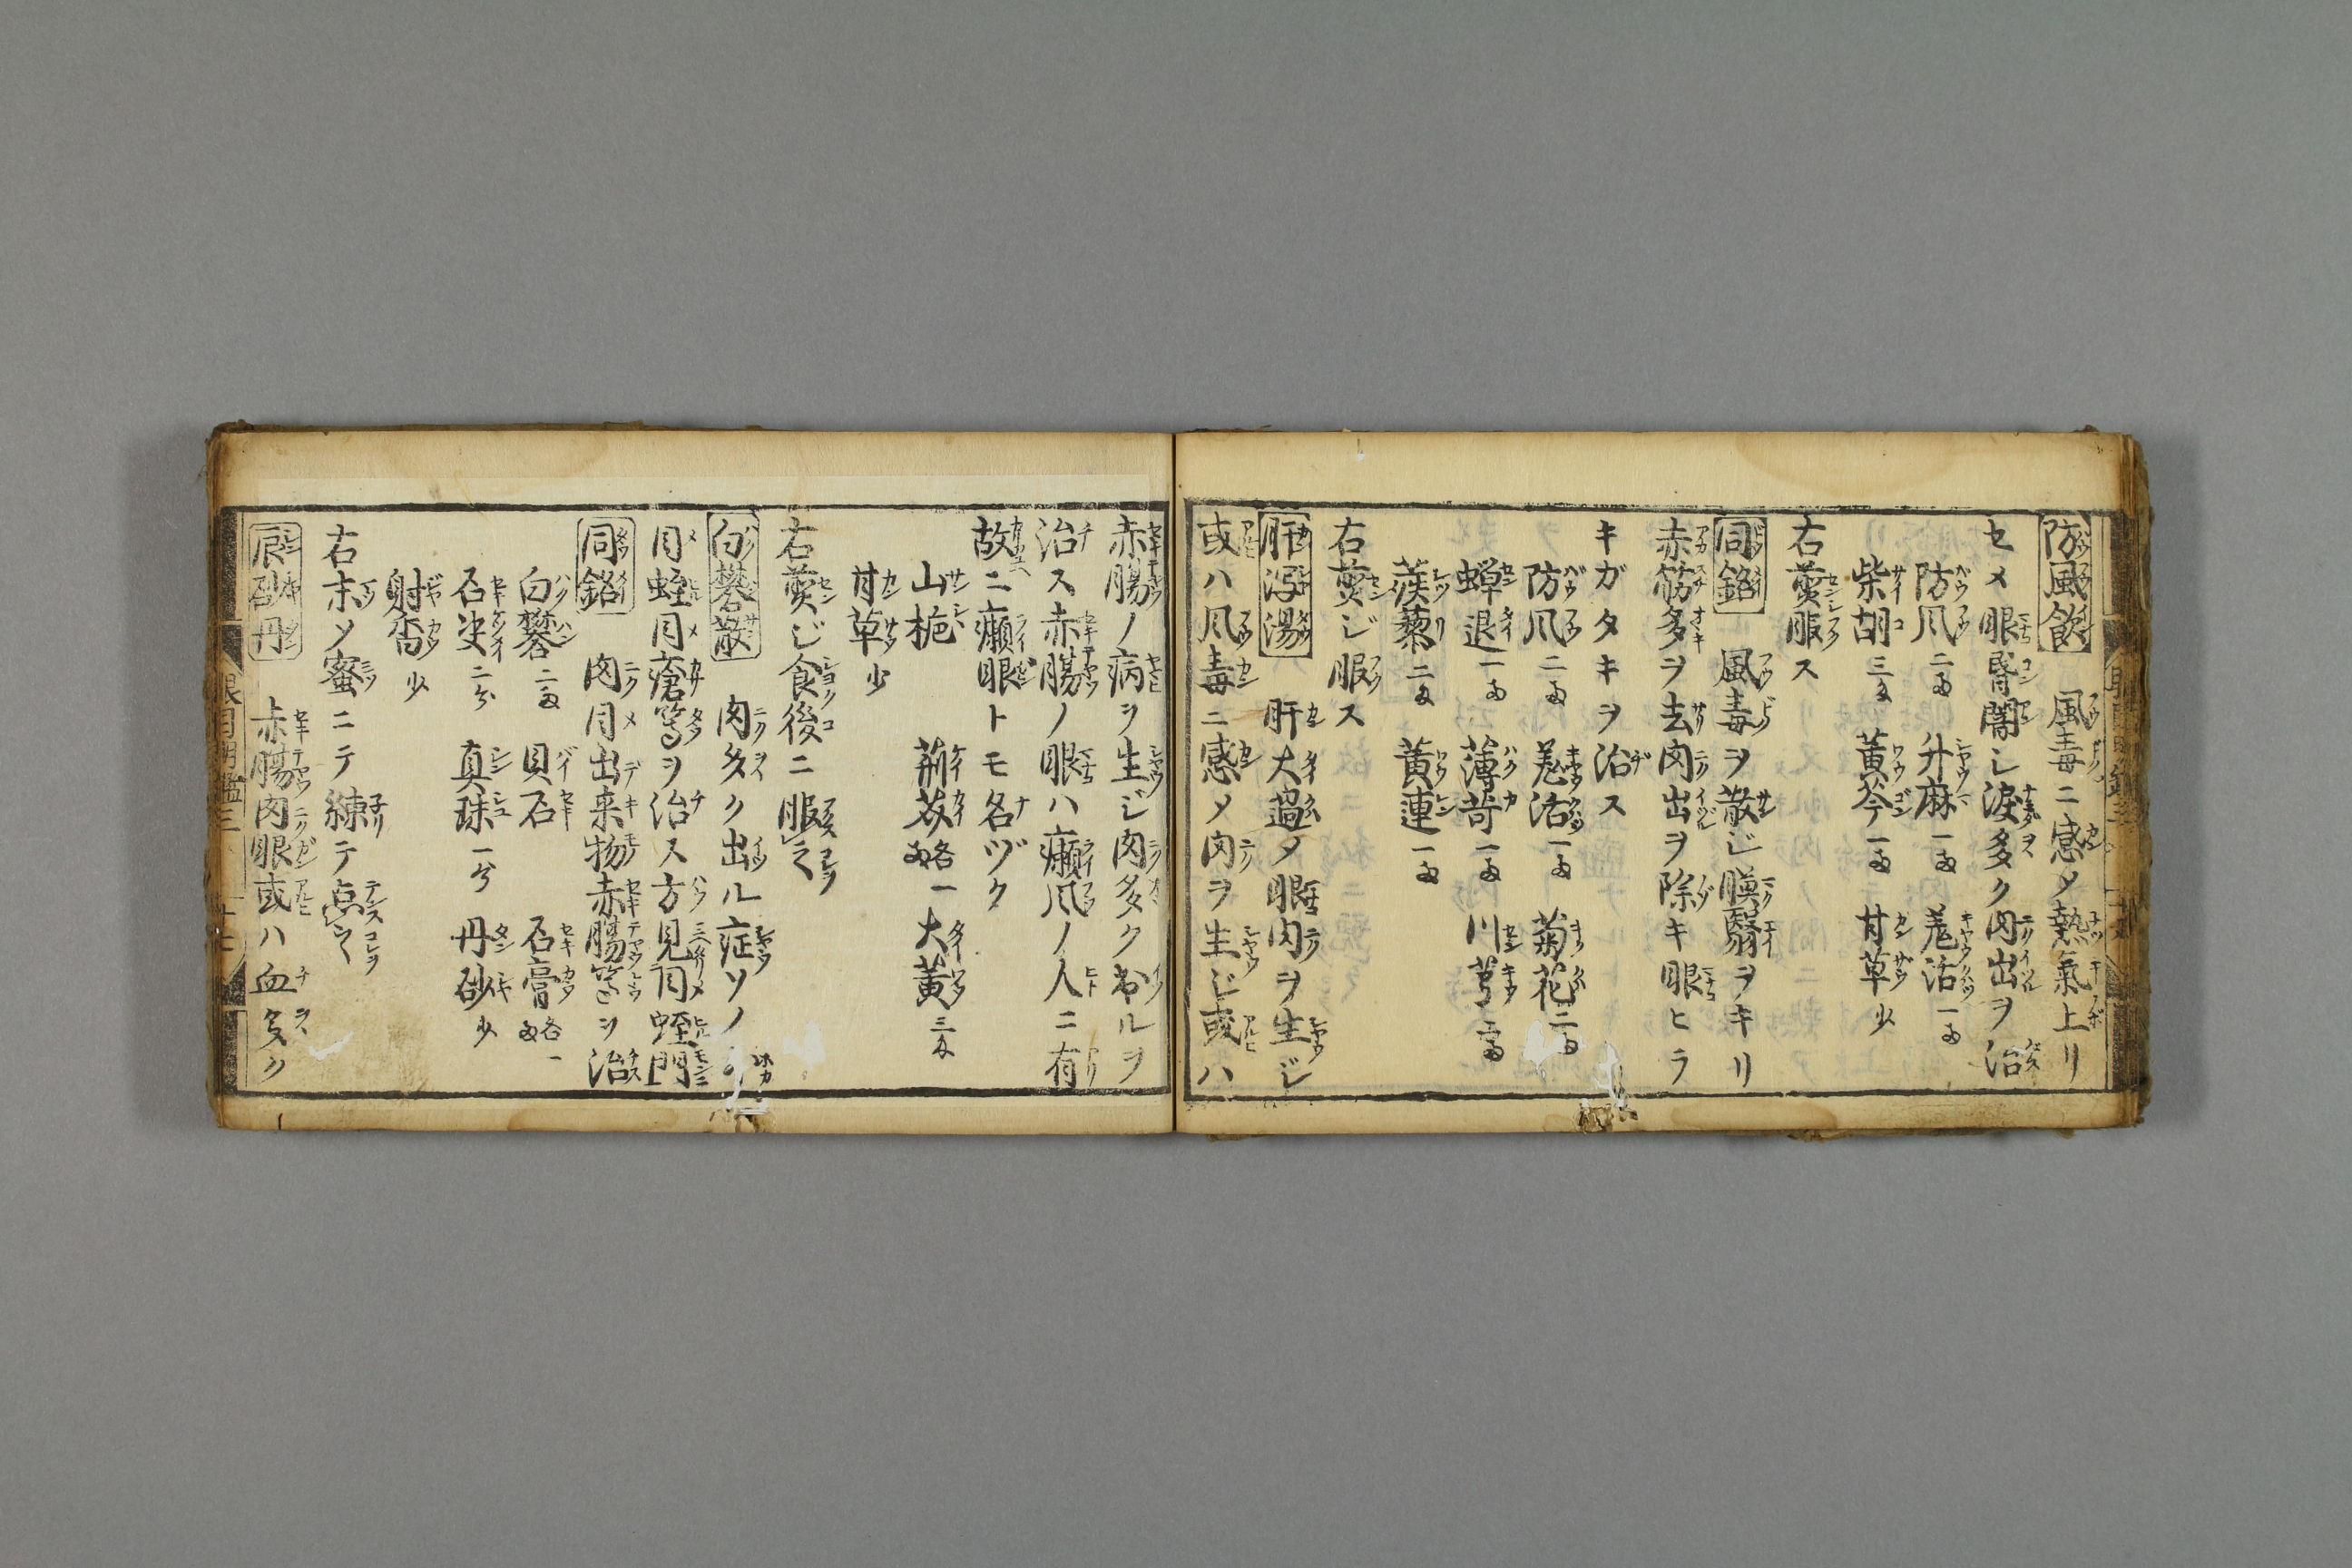 防風飲　風毒ニ感メ熱氣上リ
セメ眼昏闇シ涙多ク肉出ヲ治
防風二匁　升麻一匁　羗活一匁
柴胡三匁　黄芩一匁　甘草少
右煎服ス
同銘　風毒ヲ散ジ膜翳ヲキリ
赤筋多ヲ去肉出ヲ除キ眼ヒラ
キガタキヲ治ス
防風二匁　羗活一匁　菊花二匁
蟬退一匁　薄荷一匁　川芎
蒺藜二匁　黄連一匁
右煎ジ服ス
肝瀉湯　肝大過メ眼肉ヲ生ジ
或ハ風毒ニ感メ肉ヲ生ジ或ハ
赤腸ノ病ヲ生ジ肉多ク出ルヲ
治ス赤腸ノ眼ハ癩風ノ人ニ有
故ニ癩眼トモ名ヅク
山梔　荊芥各一匁　大黄三匁
甘草少
右煎ジ食後ニ服之
白礬散　肉多ク出ル症ソノ
目蛭目瘡等ヲ治ス方見目蛭門
同銘　肉目出来物赤腸等ヲ治
白礬二匁　貝石　石膏各一匁
石決二分　真珠一分　丹砂少
射香少
右末ソ蜜ニテ練テ点之
辰砂丹　赤腸肉眼或ハ血多ク
眼目明鑑三